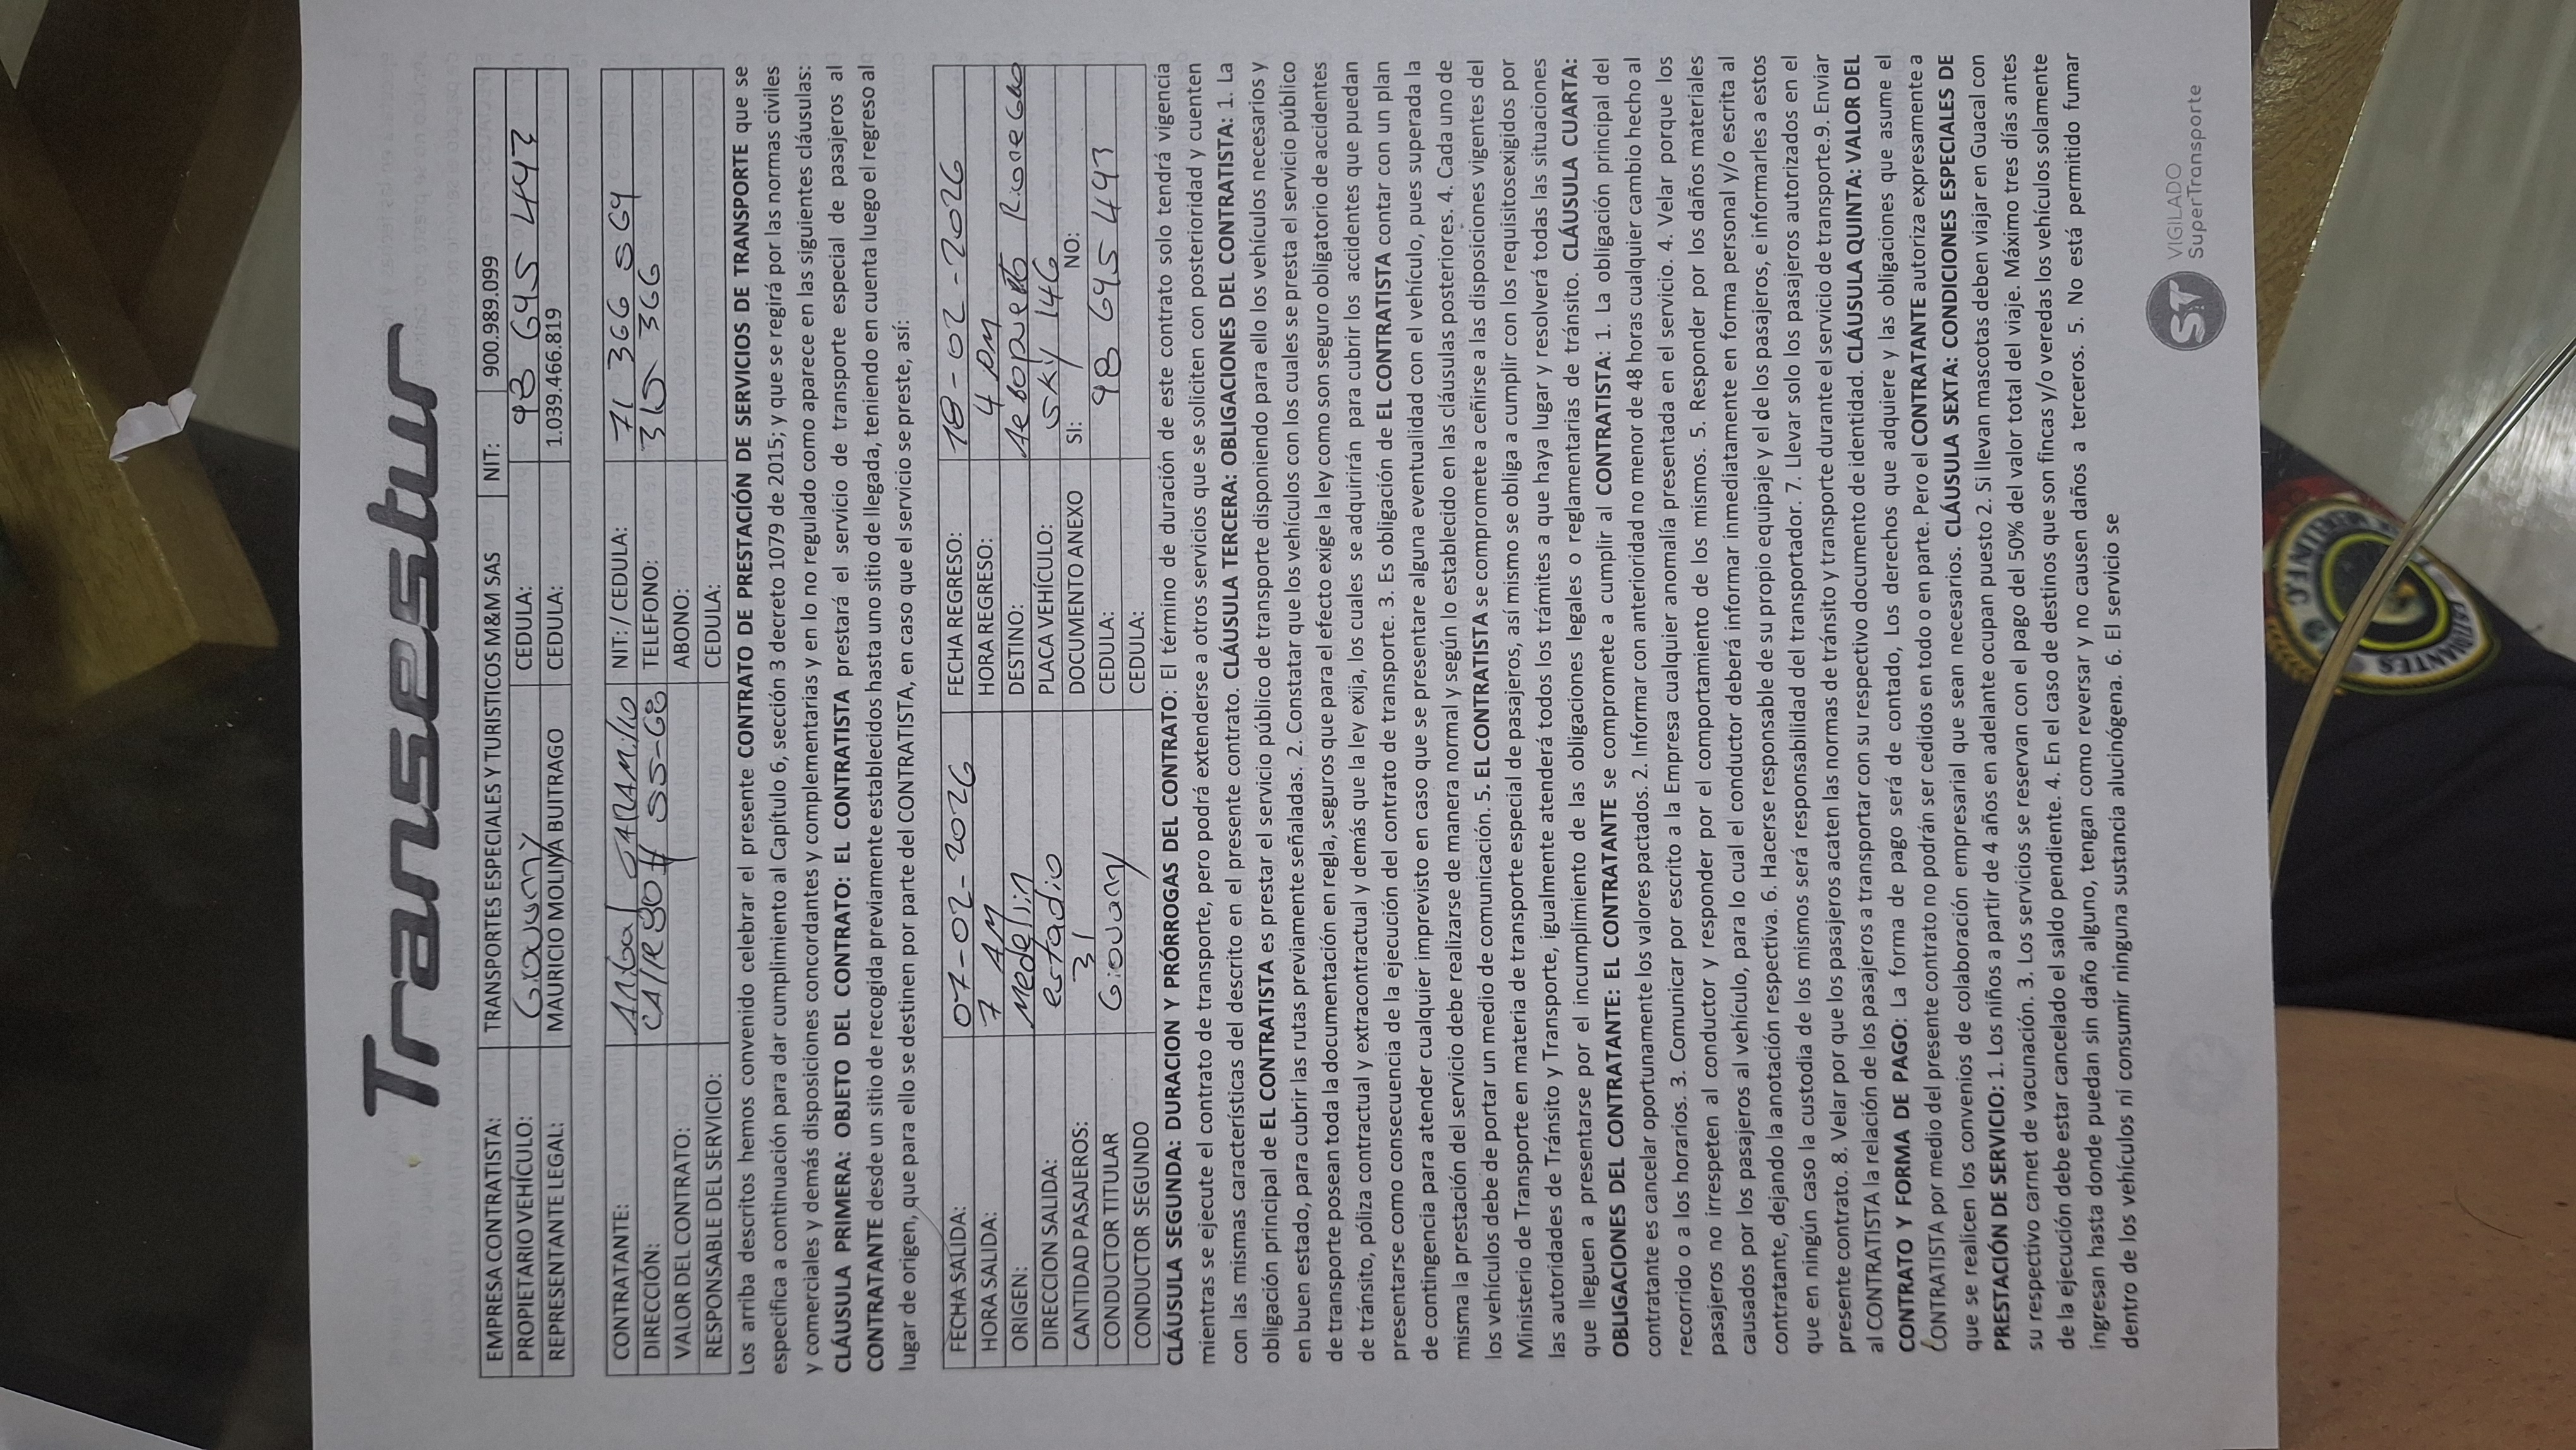 Transestur
EMPRESA CONTRATISTA: TRANSPORTES ESPECIALES Y TURISTICOS M&M SAS NIT: 900.989.099
PROPIETARIO VEHÍCULO: Giovanny CEDULA: 98 645 447
REPRESENTANTE LEGAL: MAURICIO MOLINA BUITRAGO CEDULA: 1.039.466.819
CONTRATANTE: Anibal JARAMillo NIT: / CEDULA: 71 366 564
DIRECCIÓN: CAlle 90 # 55-68 TELEFONO: 315 366
VALOR DEL CONTRATO: ABONO:
RESPONSABLE DEL SERVICIO: CEDULA:
Los arriba descritos hemos convenido celebrar el presente CONTRATO DE PRESTACIÓN DE SERVICIOS DE TRANSPORTE que se
especifica a continuación para dar cumplimiento al Capítulo 6, sección 3 decreto 1079 de 2015; y que se regirá por las normas civiles
y comerciales y demás disposiciones concordantes y complementarias y en lo no regulado como aparece en las siguientes cláusulas:
CLÁUSULA PRIMERA: OBJETO DEL CONTRATO: EL CONTRATISTA prestará el servicio de transporte especial de pasajeros al
CONTRATANTE desde un sitio de recogida previamente establecidos hasta uno sitio de llegada, teniendo en cuenta luego el regreso al
lugar de origen, que para ello se destinen por parte del CONTRATISTA, en caso que el servicio se preste, así:
FECHA SALIDA: 07-02-2026 FECHA REGRESO: 18-02-2026
HORA SALIDA: 7 AM HORA REGRESO: 4 PM
ORIGEN: Medellin DESTINO: Aeropuerto Rionegro
DIRECCION SALIDA: estadio PLACA VEHÍCULO: SKY 146
CANTIDAD PASAJEROS: 31 DOCUMENTO ANEXO SI: NO:
CONDUCTOR TITULAR Giovany CEDULA: 98 645 447
CONDUCTOR SEGUNDO CEDULA:
CLÁUSULA SEGUNDA: DURACION Y PRÓRROGAS DEL CONTRATO: El término de duración de este contrato solo tendrá vigencia
mientras se ejecute el contrato de transporte, pero podrá extenderse a otros servicios que se soliciten con posterioridad y cuenten
con las mismas características del descrito en el presente contrato. CLÁUSULA TERCERA: OBLIGACIONES DEL CONTRATISTA: 1. La
obligación principal de EL CONTRATISTA es prestar el servicio público de transporte disponiendo para ello los vehículos necesarios y
en buen estado, para cubrir las rutas previamente señaladas. 2. Constatar que los vehículos con los cuales se presta el servicio público
de transporte posean toda la documentación en regla, seguros que para el efecto exige la ley como son seguro obligatorio de accidentes
de tránsito, póliza contractual y extracontractual y demás que la ley exija, los cuales se adquirirán para cubrir los accidentes que puedan
presentarse como consecuencia de la ejecución del contrato de transporte. 3. Es obligación de EL CONTRATISTA contar con un plan
de contingencia para atender cualquier imprevisto en caso que se presentare alguna eventualidad con el vehículo, pues superada la
misma la prestación del servicio debe realizarse de manera normal y según lo establecido en las cláusulas posteriores. 4. Cada uno de
los vehículos debe de portar un medio de comunicación. 5. EL CONTRATISTA se compromete a ceñirse a las disposiciones vigentes del
Ministerio de Transporte en materia de transporte especial de pasajeros, así mismo se obliga a cumplir con los requisitosexigidos por
las autoridades de Tránsito y Transporte, igualmente atenderá todos los trámites a que haya lugar y resolverá todas las situaciones
que lleguen a presentarse por el incumplimiento de las obligaciones legales o reglamentarias de tránsito. CLÁUSULA CUARTA:
OBLIGACIONES DEL CONTRATANTE: EL CONTRATANTE se compromete a cumplir al CONTRATISTA: 1. La obligación principal del
contratante es cancelar oportunamente los valores pactados. 2. Informar con anterioridad no menor de 48 horas cualquier cambio hecho al
recorrido o a los horarios. 3. Comunicar por escrito a la Empresa cualquier anomalía presentada en el servicio. 4. Velar porque los
pasajeros no irrespeten al conductor y responder por el comportamiento de los mismos. 5. Responder por los daños materiales
causados por los pasajeros al vehículo, para lo cual el conductor deberá informar inmediatamente en forma personal y/o escrita al
contratante, dejando la anotación respectiva. 6. Hacerse responsable de su propio equipaje y el de los pasajeros, e informarles a estos
que en ningún caso la custodia de los mismos será responsabilidad del transportador. 7. Llevar solo los pasajeros autorizados en el
presente contrato. 8. Velar por que los pasajeros acaten las normas de tránsito y transporte durante el servicio de transporte.9. Enviar
al CONTRATISTA la relación de los pasajeros a transportar con su respectivo documento de identidad. CLÁUSULA QUINTA: VALOR DEL
CONTRATO Y FORMA DE PAGO: La forma de pago será de contado, Los derechos que adquiere y las obligaciones que asume el
CONTRATISTA por medio del presente contrato no podrán ser cedidos en todo o en parte. Pero el CONTRATANTE autoriza expresamente a
que se realicen los convenios de colaboración empresarial que sean necesarios. CLÁUSULA SEXTA: CONDICIONES ESPECIALES DE
PRESTACIÓN DE SERVICIO: 1. Los niños a partir de 4 años en adelante ocupan puesto 2. Si llevan mascotas deben viajar en Guacal con
su respectivo carnet de vacunación. 3. Los servicios se reservan con el pago del 50% del valor total del viaje. Máximo tres días antes
de la ejecución debe estar cancelado el saldo pendiente. 4. En el caso de destinos que son fincas y/o veredas los vehículos solamente
ingresan hasta donde puedan sin daño alguno, tengan como reversar y no causen daños a terceros. 5. No está permitido fumar
dentro de los vehículos ni consumir ninguna sustancia alucinógena. 6. El servicio se
ST
VIGILADO
SuperTransporte